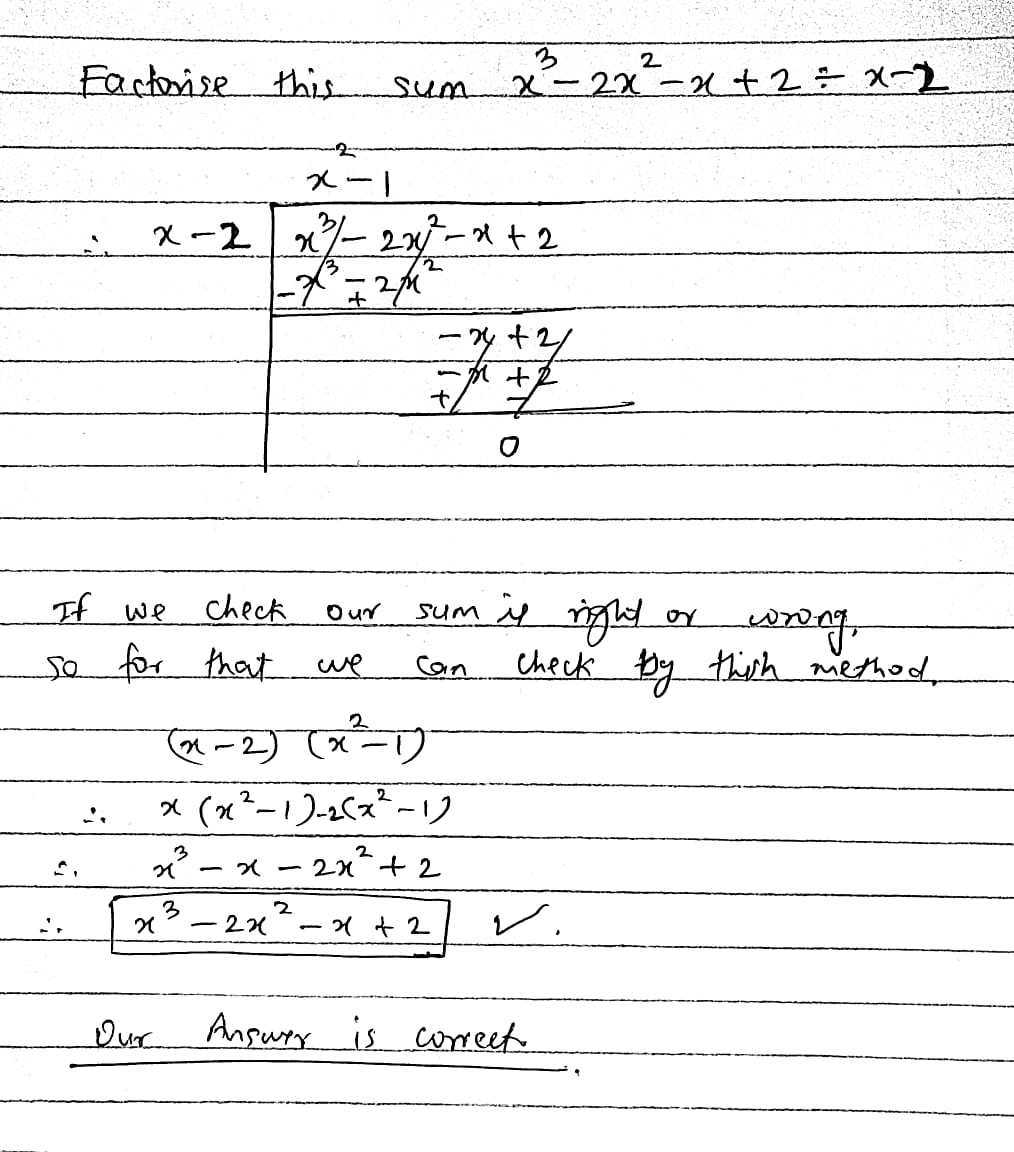 Factorise this sum x³ - 2x² - x + 2 ÷ x-2
x² - 1
∴ x - 2 x³ - 2x² - x + 2
- x³ - 2x²
+
- x + 2
- x + 2
+ -
0
If we check our sum is right or wrong,
so for that we can check by thish method.
(x - 2) (x² - 1)
∴ x (x² - 1) -2(x² - 1)
∴ x³ - x - 2x² + 2
∴ x³ - 2x² - x + 2 ✓.
Our Answer is correct.